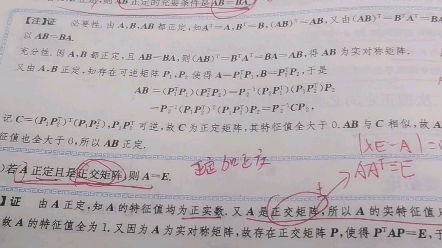 则 AB 正定的充要条件是 AB=BA.
【注】证 必要性. 由 A,B,AB 都正定, 知 Aᵀ=A, Bᵀ=B, (AB)ᵀ=AB, 又由 (AB)ᵀ=BᵀAᵀ=BA
以 AB=BA.
充分性. 因 A,B 都正定, 且 AB=BA, 则(AB)ᵀ=BᵀAᵀ=BA=AB, 得 AB 为实对称矩阵.
又由 A,B 正定, 知存在可逆矩阵 P₁,P₂ 使得 A=P₁ᵀP₁, B=P₂ᵀP₂, 于是
AB=(P₁ᵀP₁)(P₂ᵀP₂)=P₂⁻¹(P₂P₁ᵀ)(P₁P₂ᵀ)P₂
=P₂⁻¹(P₁P₂ᵀ)ᵀ(P₁P₂ᵀ)P₂=P₂⁻¹CP₂,
记 C=(P₁P₂ᵀ)ᵀ(P₁P₂ᵀ), P₁P₂ᵀ 可逆, 故 C 为正定矩阵, 其特征值全大于 0. AB 与 C 相似, 故 A
征值也全大于 0, 所以 AB 正定.
|λE-A|=
)若 A 正定且是正交矩阵, 则 A=E.
AAᵀ=E
】证 由 A 正定, 知 A 的特征值均为正实数. 又 A 是正交矩阵, 所以 A 的实特征值
故 A 的特征值全为 1, 又因为 A 为实对称矩阵, 故存在正交矩阵 P, 使得 PᵀAP=E, 于